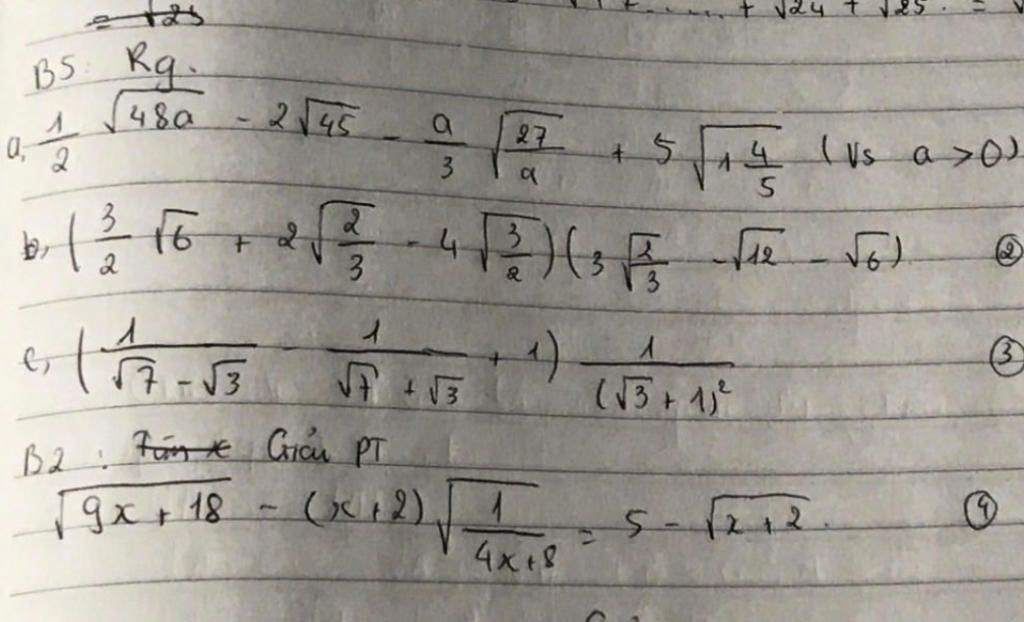 = √25
+ √24 + √25 . = √
B5: Rg.
a, 1/2 √(48a) - 2√45 - a/3 √(27/a) + 5 √(1 4/5) (Vs a > 0)
b, (3/2 √6 + 2√(2/3) - 4√(3/2)) (3√(2/3) - √12 - √6) ②
c, (1/(√7 - √3) - 1/(√7 + √3) + 1) 1/(√3 + 1)² ③
B2 : Tìm x Giải PT
√(9x + 18) - (x + 2) √(1/(4x + 8)) = 5 - √(x + 2) . ④